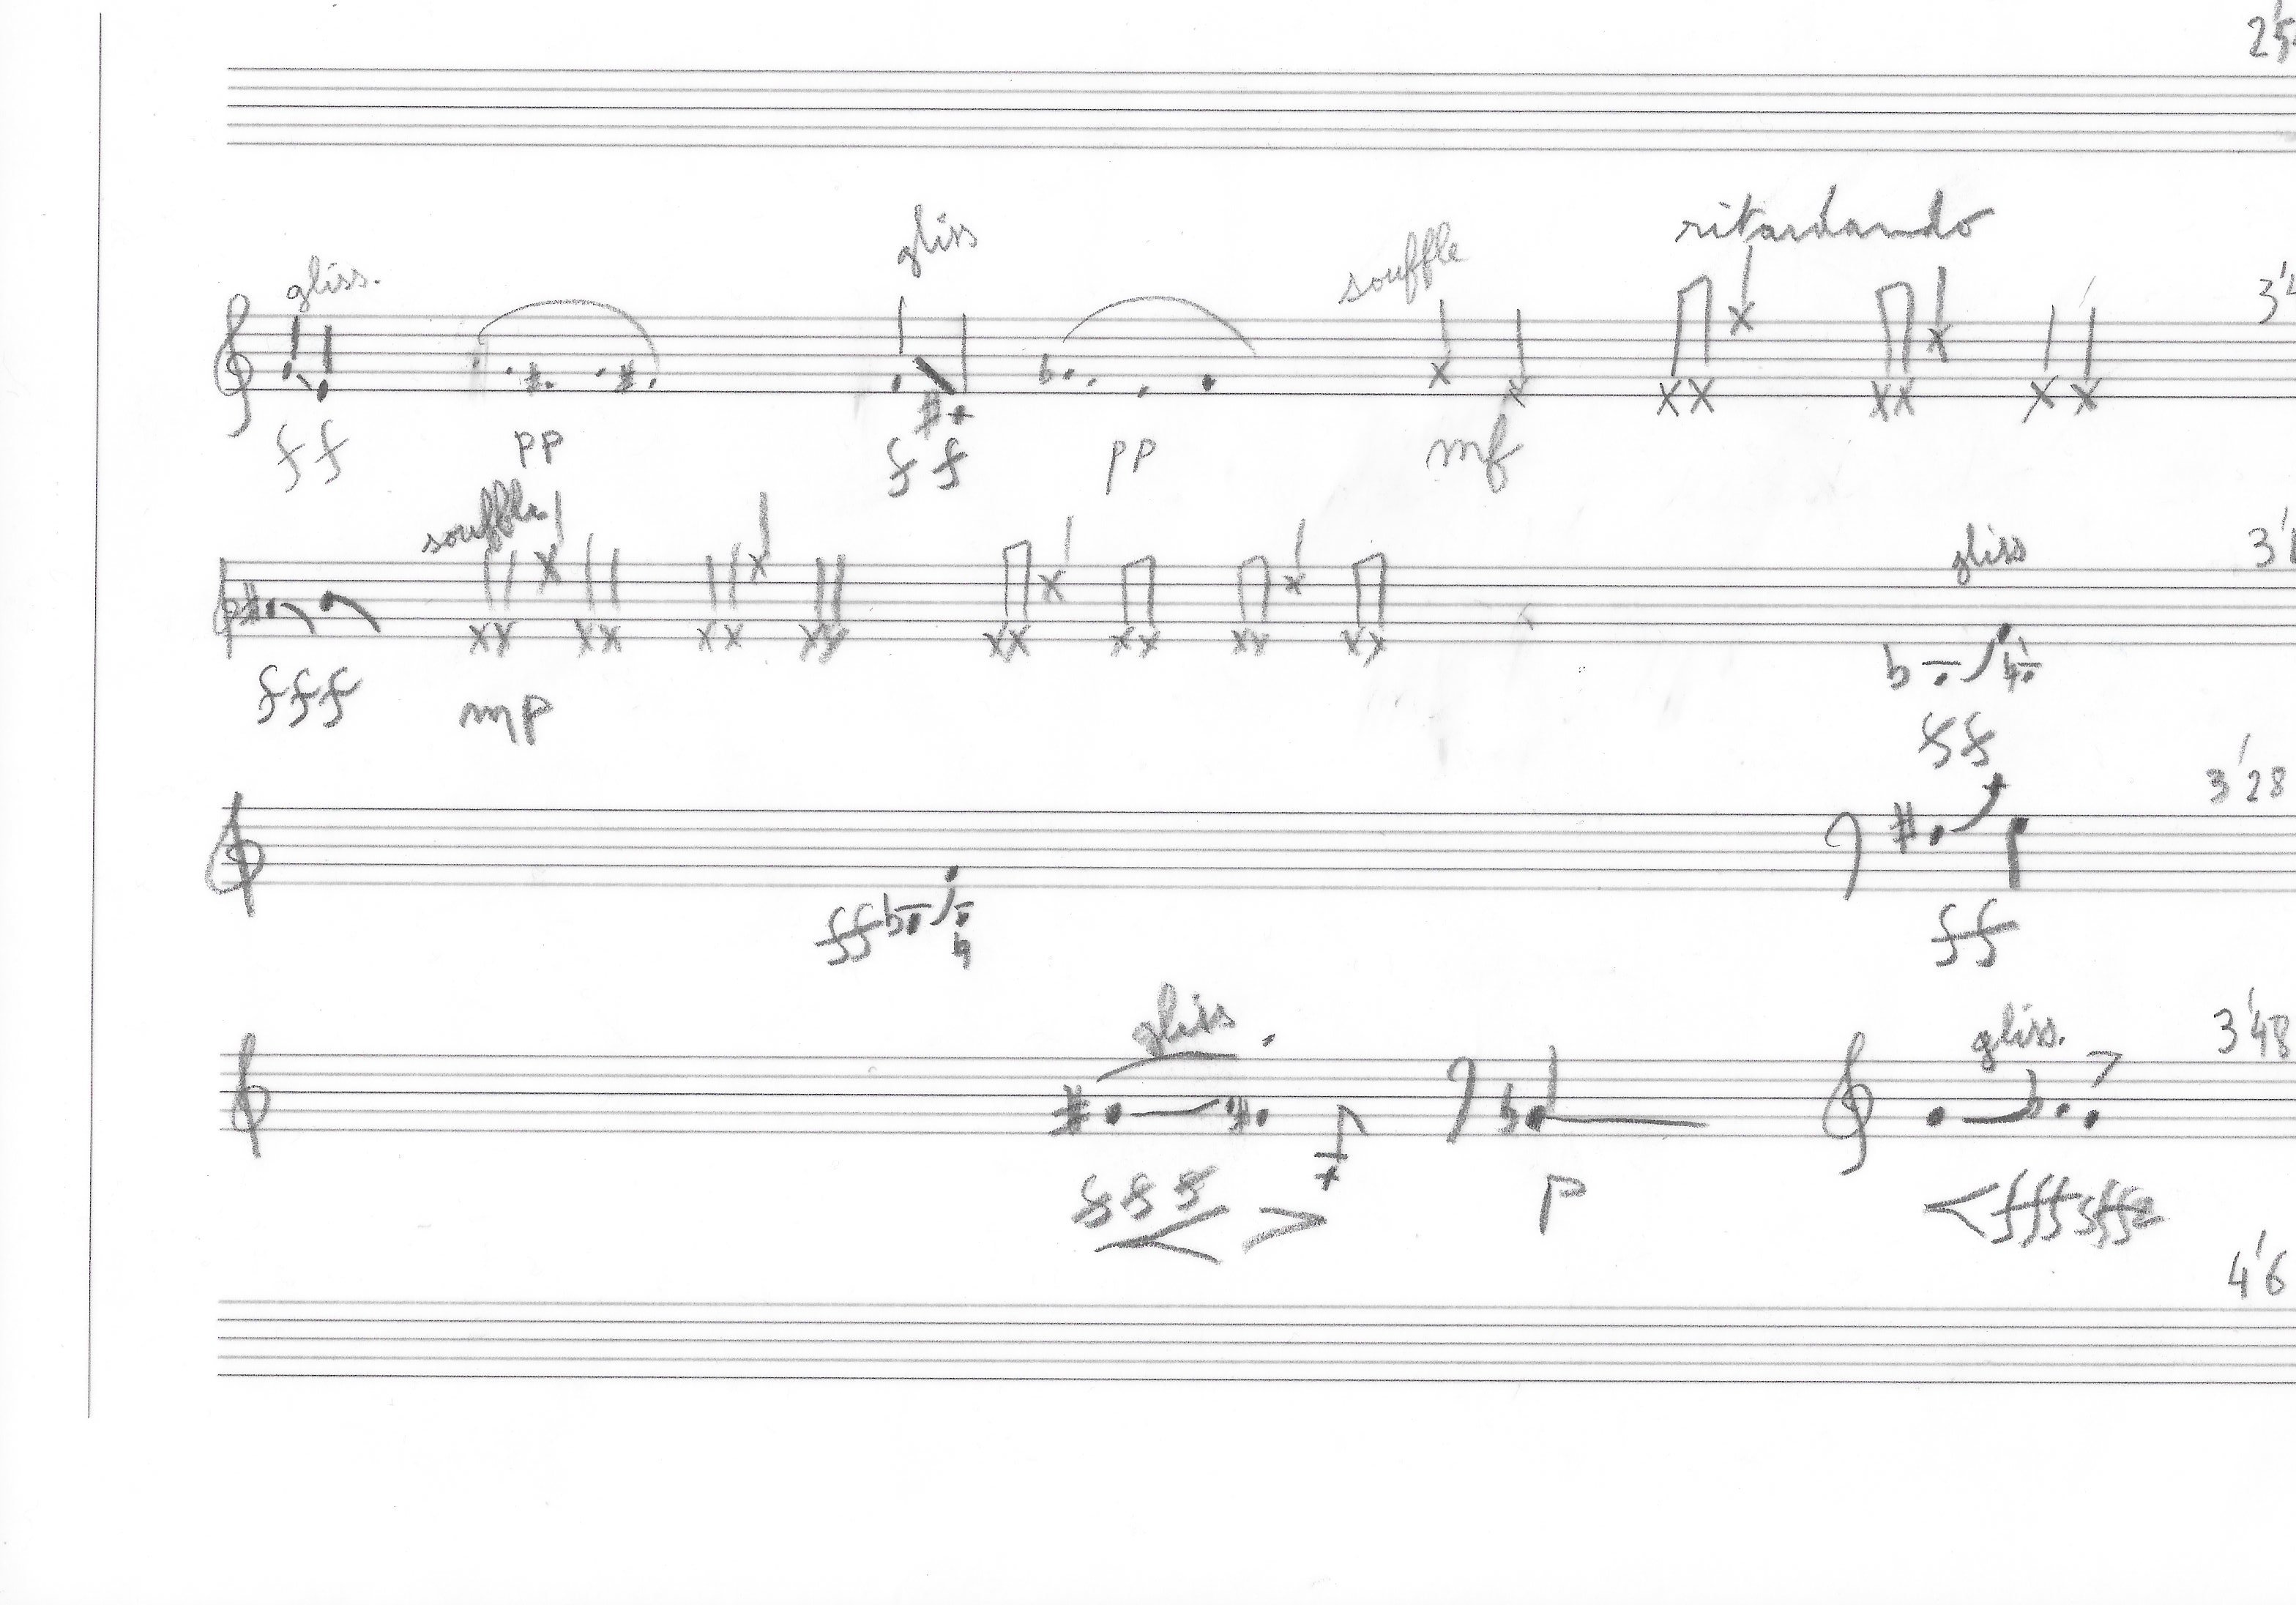 gliss. gliss souffle ritardando
ff pp ff pp mf
souffle gliss
fff mp ff
3'28
ff ff
gliss. gliss. 3'48
fff < > p < fff sffz
4'6